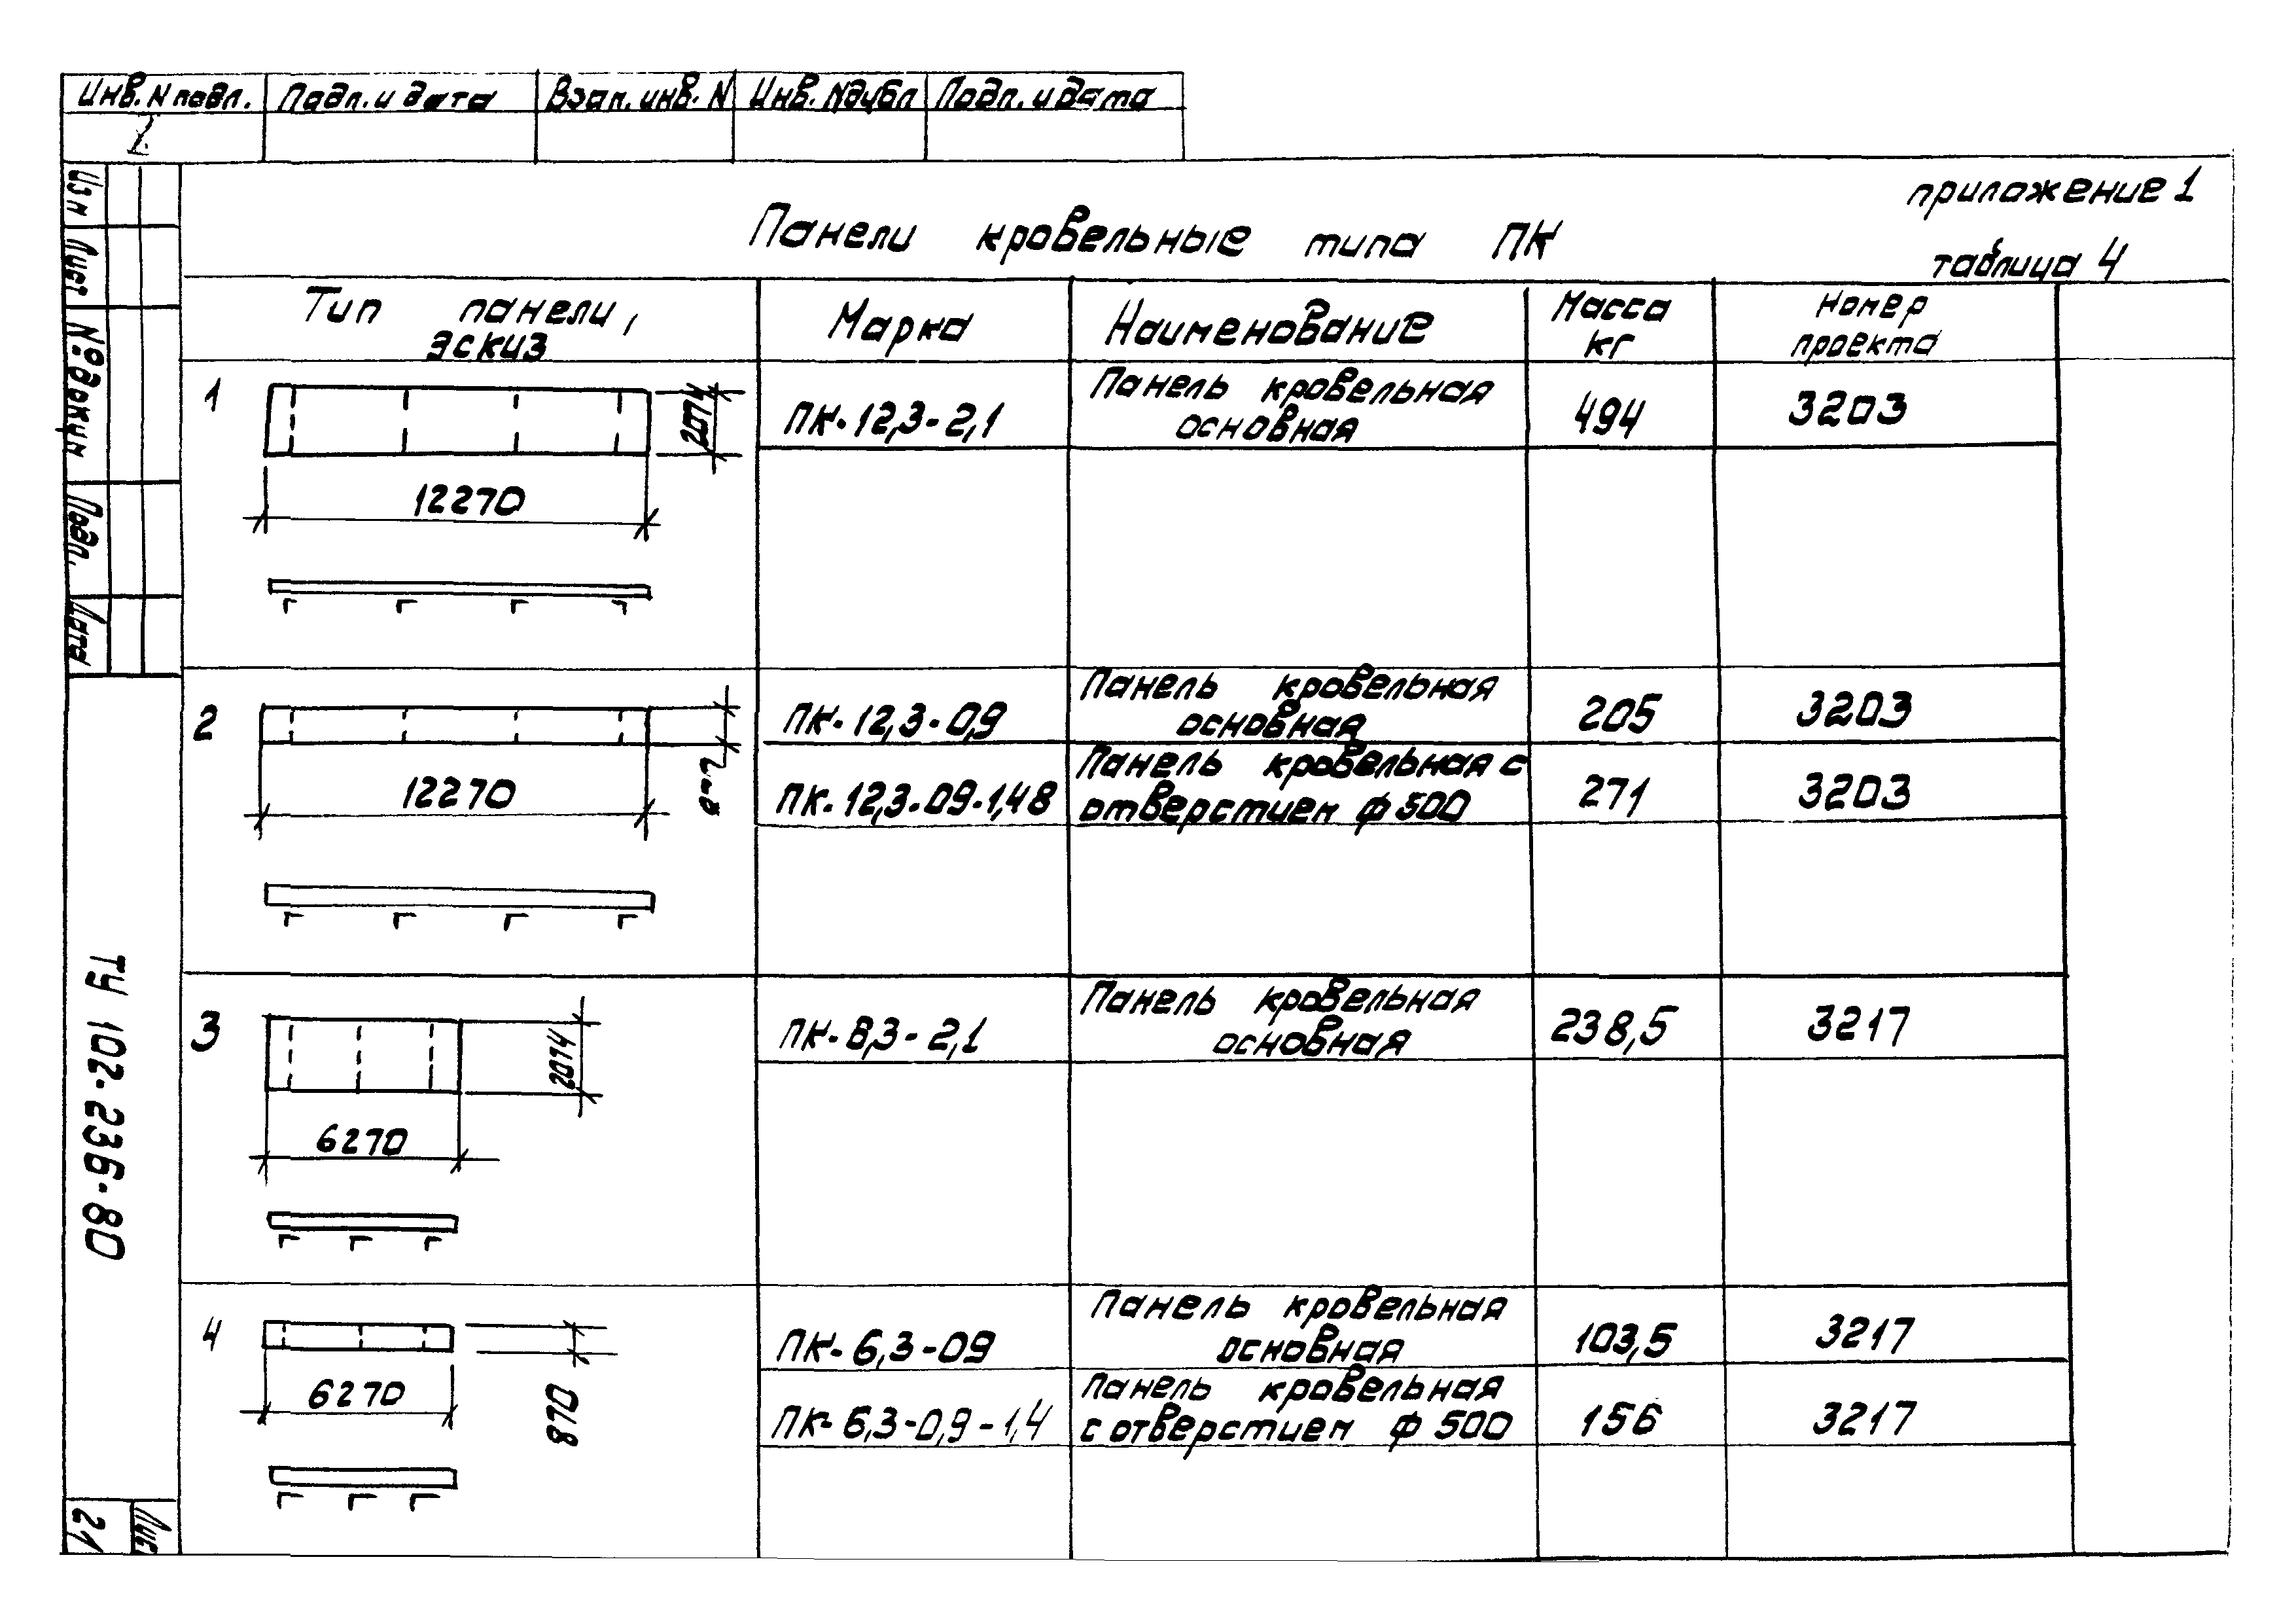 Инв. N подл. Подп. и дата Взам. инв. N Инв. N дубл Подп. и дата
приложение 1
Панели кровельные типа ПК
таблица 4
Тип панели, Марка Наименование Масса Номер
эскиз кг проекта
1
2074
12270
ПК-12,3-2,1 Панель кровельная 494 3203
основная
2
12270
ПК-12,3-0,9 Панель кровельная 205 3203
основная
ПК-12,3-09-1,48 Панель кровельная с 271 3203
отверстием ф 500
3
2074
6270
ПК-8,3-2,1 Панель кровельная 238,5 3217
основная
4
6270
870
ПК-6,3-09 Панель кровельная 103,5 3217
основная
ПК-6,3-0,9-1,4 Панель кровельная 156 3217
с отверстием ф 500
Изм
Лист
№ докум
Подп.
Дата
ТУ 102-236-80
Лис
21